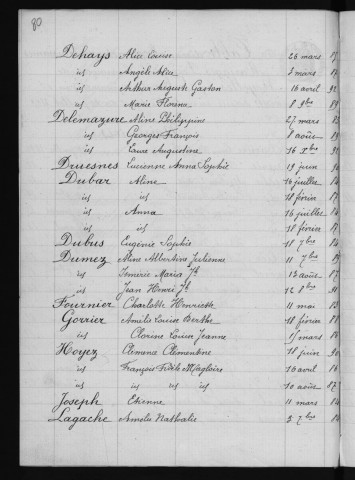 80
Dehays Alice Louise 26 mars
id Angèle Alice 3 mars
id Arthur Auguste Gaston 16 avril
id Marie Florence 8 9bre
Delemazure Aline Philippine 27 mars
id Georges François 8 août
id Laure Augustine 16 Xbre
Druesnes Lucienne Anna Sophie 19 juin
Dubar Aline 16 juillet
id id 18 février
id Anna 16 juillet
id id 18 février
Dubus Eugénie Sophie 18 7bre
Dumez Aline Albertine Julienne 11 7bre
id Maria Jh 13 août
id Jean Henri Jh 12 8bre
Fournier Charlotte Henriette 11 mai
Gorrier Amélie Louise Berthe 18 février
id Louise Jeanne 15 mars
Hoyez Clémence Clémentine 18 juin
id François Fidèle Magloire 16 avril
id id id id 10 août
Joseph Etienne 11 mars
Lagache Amélie Nathalie 3 7bre